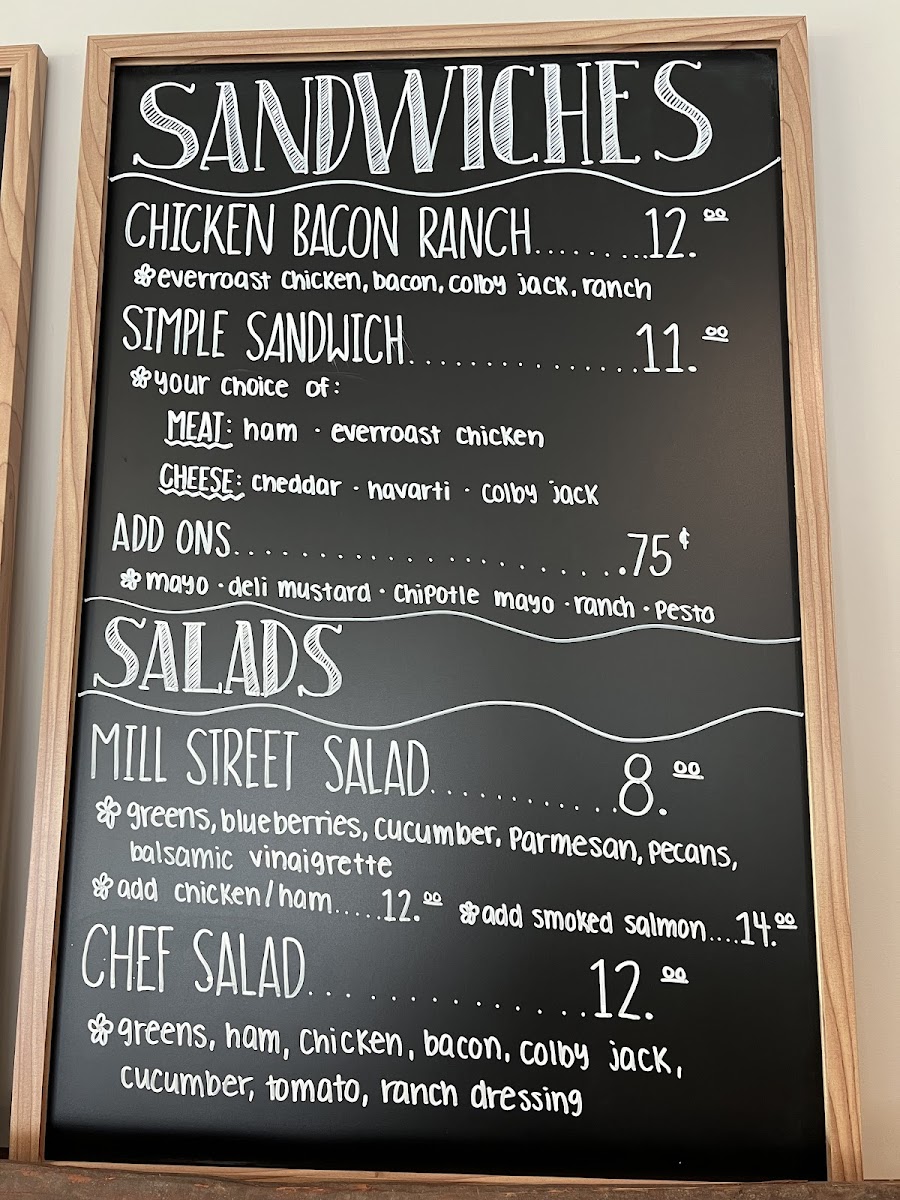 SANDWICHES
CHICKEN BACON RANCH.........12.00
everroast chicken, bacon, colby jack, ranch
SIMPLE SANDWICH..............11.00
your choice of:
MEAT: ham · everroast chicken
CHEESE: cheddar · havarti · colby jack
ADD ONS......................75¢
mayo · deli mustard · chipotle mayo · ranch · pesto
SALADS
MILL STREET SALAD............8.00
greens, blueberries, cucumber, parmesan, pecans,
balsamic vinaigrette
add chicken/ham.....12.00 add smoked salmon....14.00
CHEF SALAD..............12.00
greens, ham, chicken, bacon, colby jack,
cucumber, tomato, ranch dressing